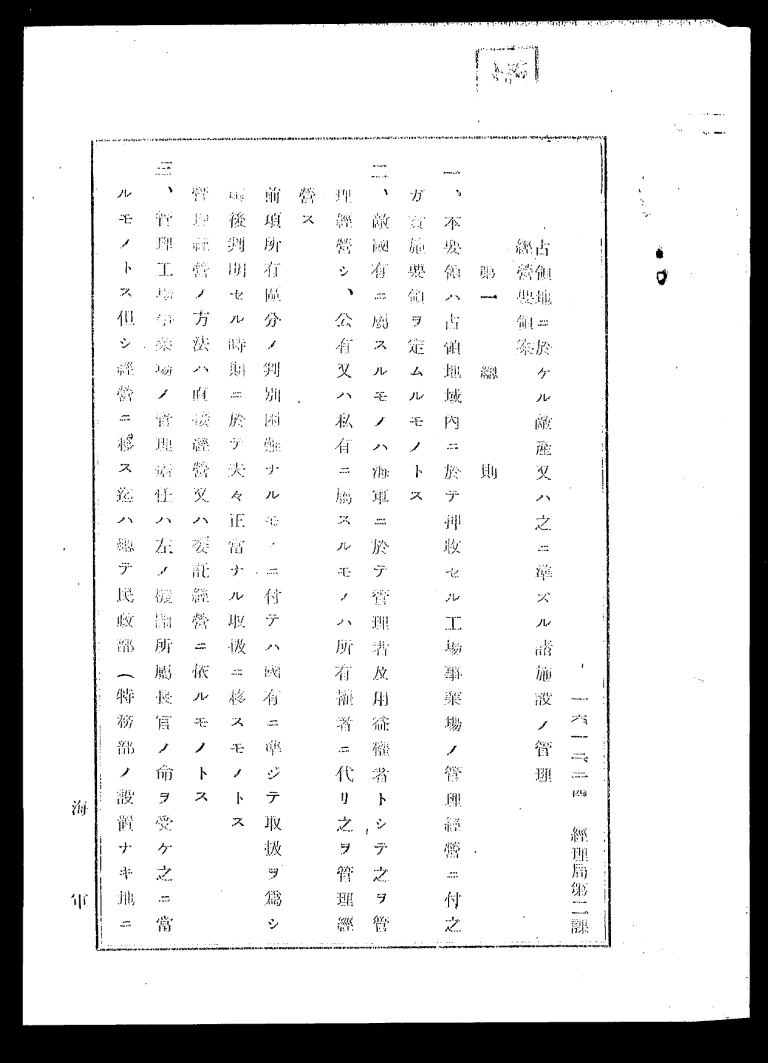 一六、一二、二四 經理局第二課
占領地ニ於ケル敵產又ハ之ニ準ズル諸施設ノ管理
經營要領案
第一 總則
一、本要領ハ占領地域內ニ於テ押收セル工場事業場ノ管理經營ニ付之
ガ實施要領ヲ定ムルモノトス
二、敵國有ニ屬スルモノハ海軍ニ於テ管理者及用益權者トシテ之ヲ管
理經營シ、公有又ハ私有ニ屬スルモノハ所有權者ニ代リ之ヲ管理經
營ス
前項所有區分ノ判別困難ナルモノニ付テハ國有ニ準ジテ取扱ヲ爲シ
後判明セル時期ニ於テ夫々正當ナル取扱ニ移スモノトス
管理經營ノ方法ハ直接經營又ハ委託經營ニ依ルモノトス
三、管理工場事業場ノ管理責任ハ左ノ機關所屬長官ノ命ヲ受ケ之ニ當
ルモノトス但シ經營ニ移ス迄ハ總テ民政部(特務部ノ設置ナキ地ニ
海軍